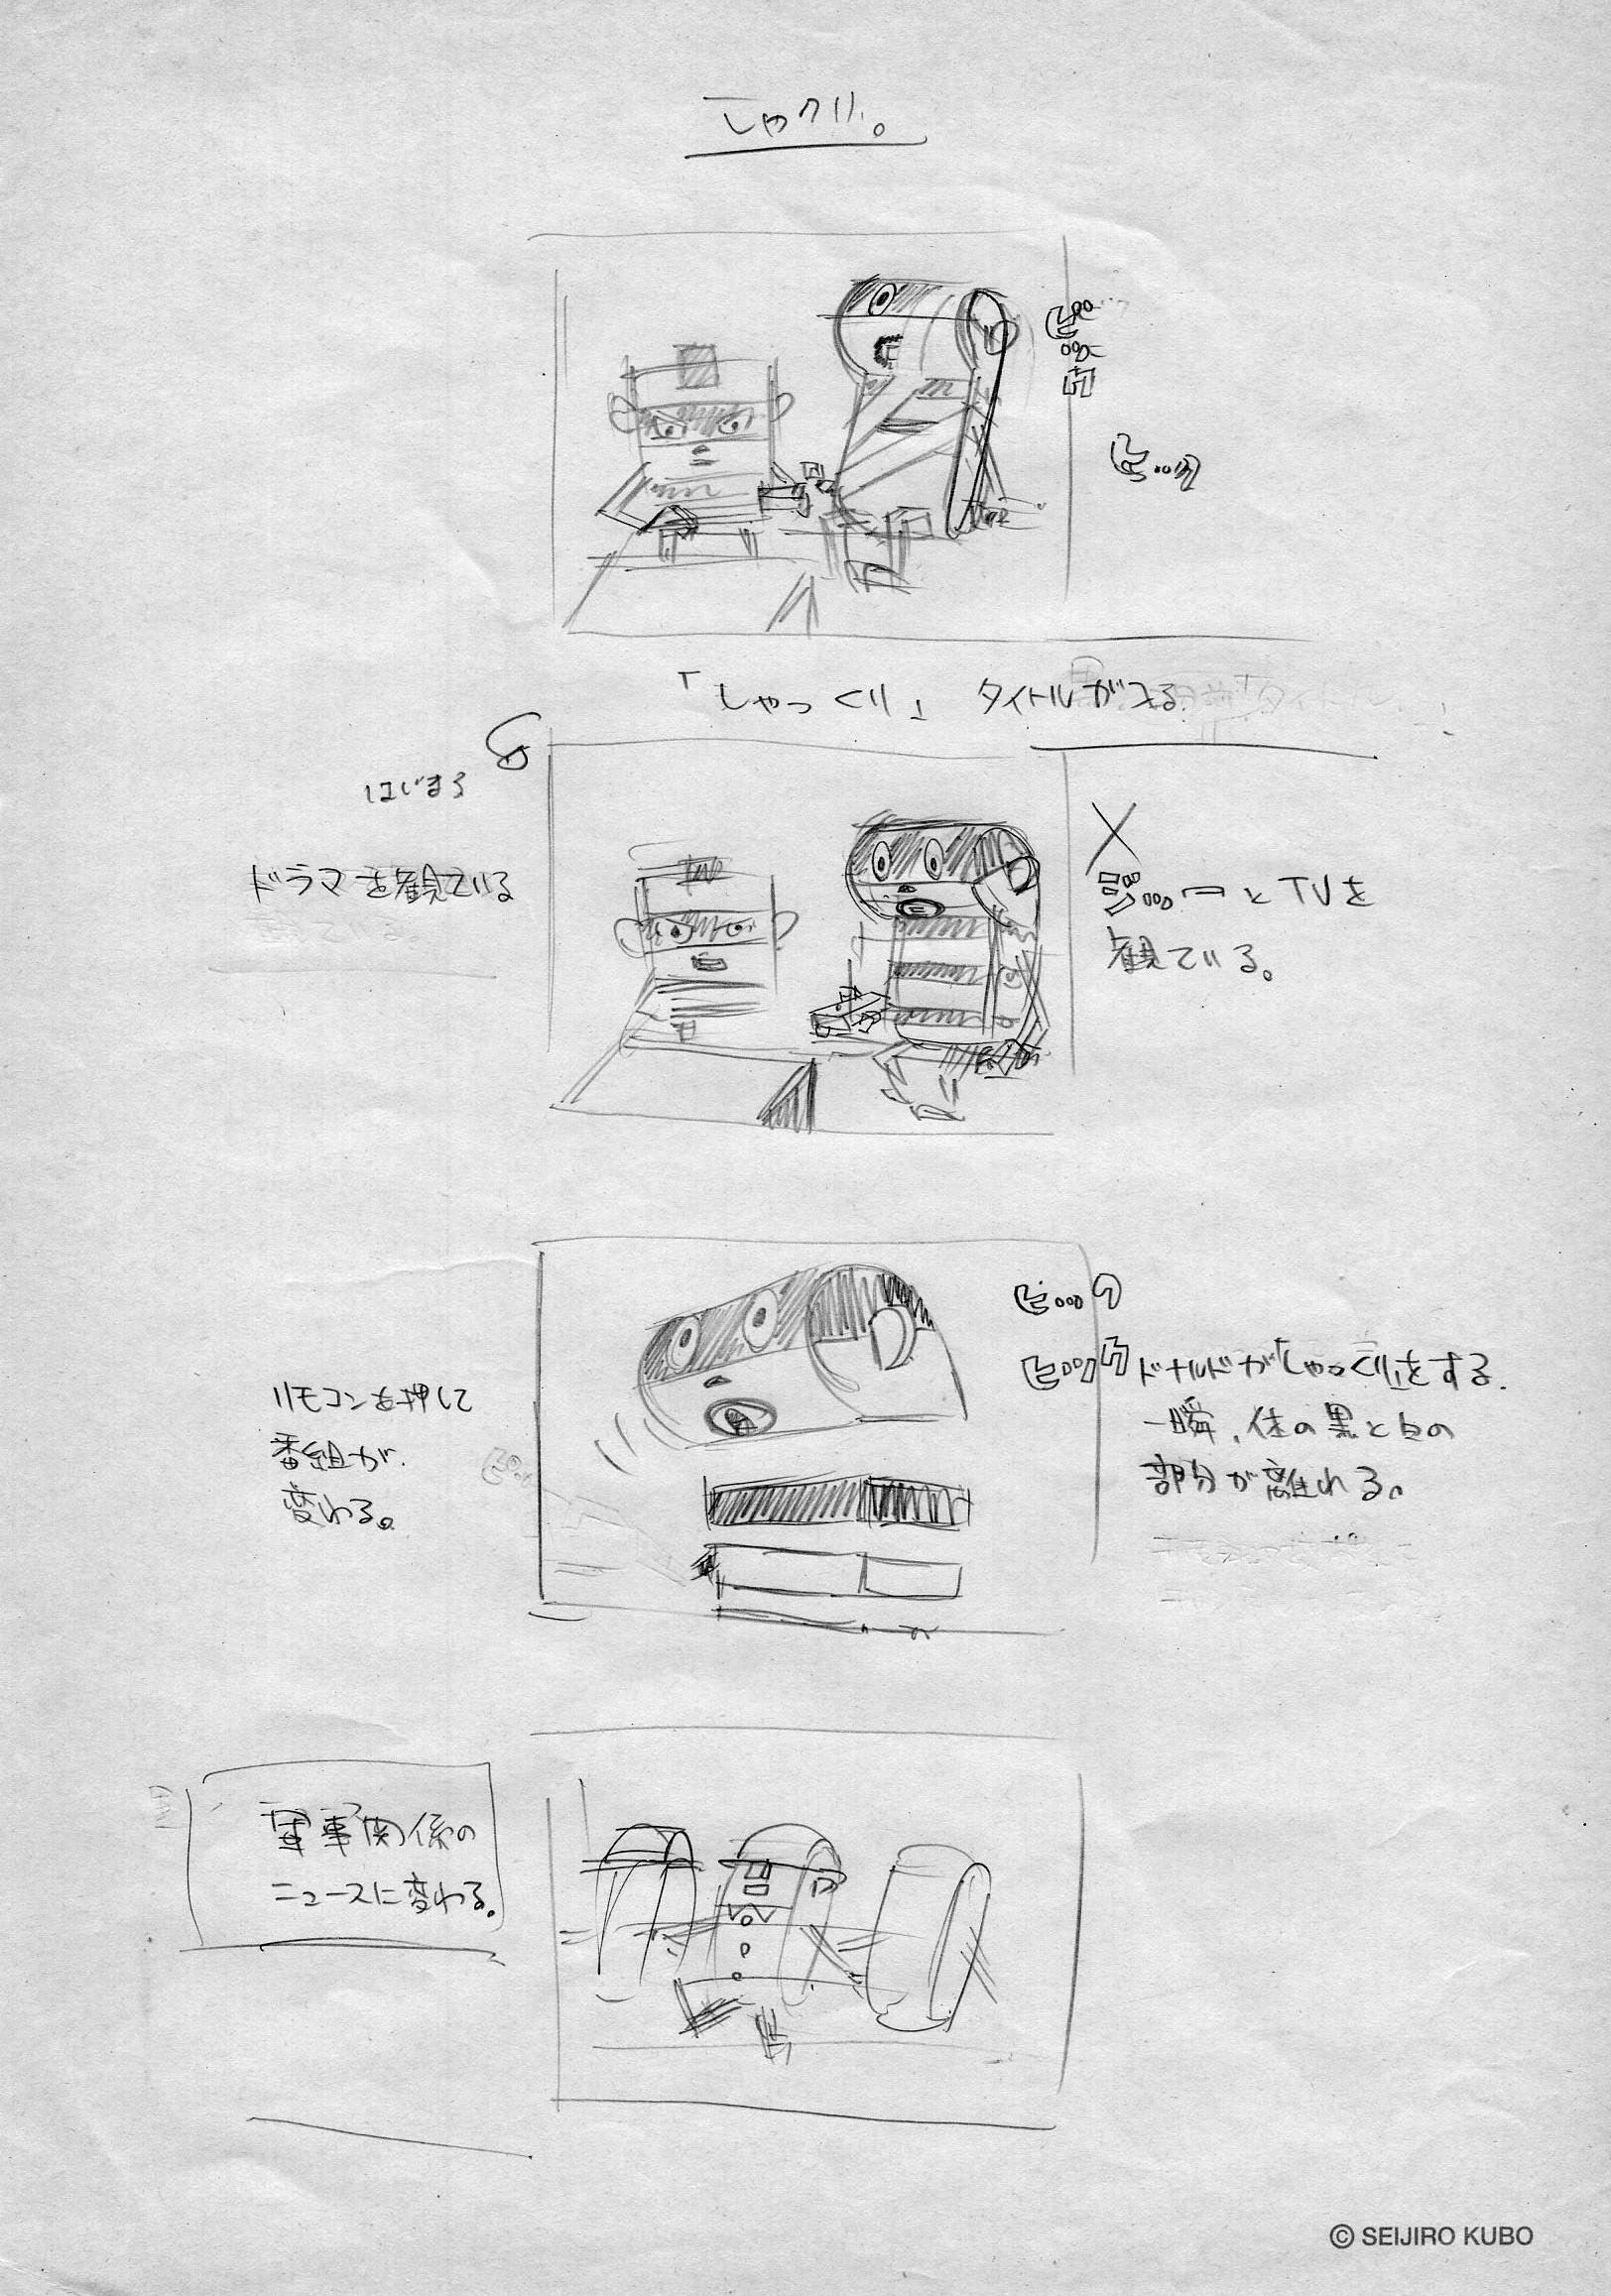 しゃクリ。
ヒ゜。。。ック
ヒ゜。。ック
「しゃっくり」 タイトルが入る
はじまる
ドラマを観ている
とTVを
観ている。
リモコンを押して
番組が
変わる。
ヒ゜。。。ク
ヒ゜ック
ドナルドが「しゃっくり」をする.
一瞬、体の黒と白の
部分が離れる。
軍事関係の
ニュースに変わる。
© SEIJIRO KUBO